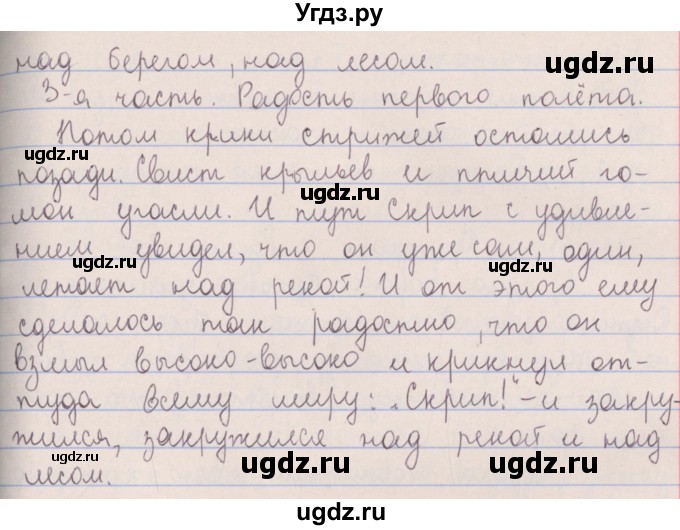 Угдз.ру
над берегом, над лесом.
ugdz.ru
3-я часть. Радость первого полёта.
Потом крики стрижей остались
ugdz.ru
позади. Свист крыльев и птичий го-
ugdz.ru
мон угасли. И тут Скрип с удивле-
нием увидел, что он уже сам, один,
ugdz.ru
ugdz.ru
летает над рекой! И от этого ему
сделалось так радостно, что он
взмыл высоко-высоко и крикнул от-
туда всему миру: „Скрип!“ - и закру-
ugdz.ru
ugdz.ru
жился, закружился над рекой и над
ugdz.ru
ugdz.ru
ugdz.ru
лесом.
ugdz.ru